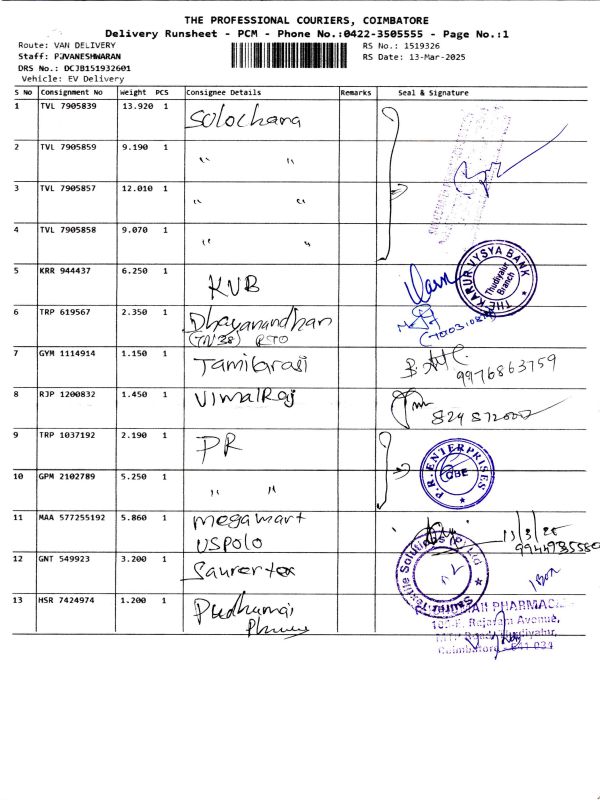 THE PROFESSIONAL COURIERS, COIMBATORE
Delivery Runsheet - PCM - Phone No.:0422-3505555 - Page No.:1
Route: VAN DELIVERY
RS No.: 1519326
Staff: PJVANESHWARAN
RS Date: 13-Mar-2025
DRS No.: DCJB151932601
Vehicle: EV Delivery
S No Consignment No Weight PCS Consignee Details Remarks Seal & Signature
1 TVL 7905839 13.920 1 Sulochana
2 TVL 7905859 9.190 1 " "
3 TVL 7905857 12.010 1 " "
4 TVL 7905858 9.070 1 " "
5 KRR 944437 6.250 1 KVB
THE KARUR VYSYA BANK
Thudiyalur
Branch
6 TRP 619567 2.350 1 Dhayanandhan
(TN38) RTO
7 GYM 1114914 1.150 1 Tamilarasi
9976863759
8 RJP 1200832 1.450 1 VimalRaj
9 TRP 1037192 2.190 1 PR
P.R. ENTERPRISES
CBE
10 GPM 2102789 5.250 1 " "
11 MAA 577255192 5.860 1 Megamart
USPOLO
13/3/25
12 GNT 549923 3.200 1 Saurertex
Saurer Textile Solutions (P) Ltd
13 HSR 7424974 1.200 1 Pudhumai
PHARMACY
Rajaram Avenue,
MTP Road, Thudiyalur,
Coimbatore - 641 034